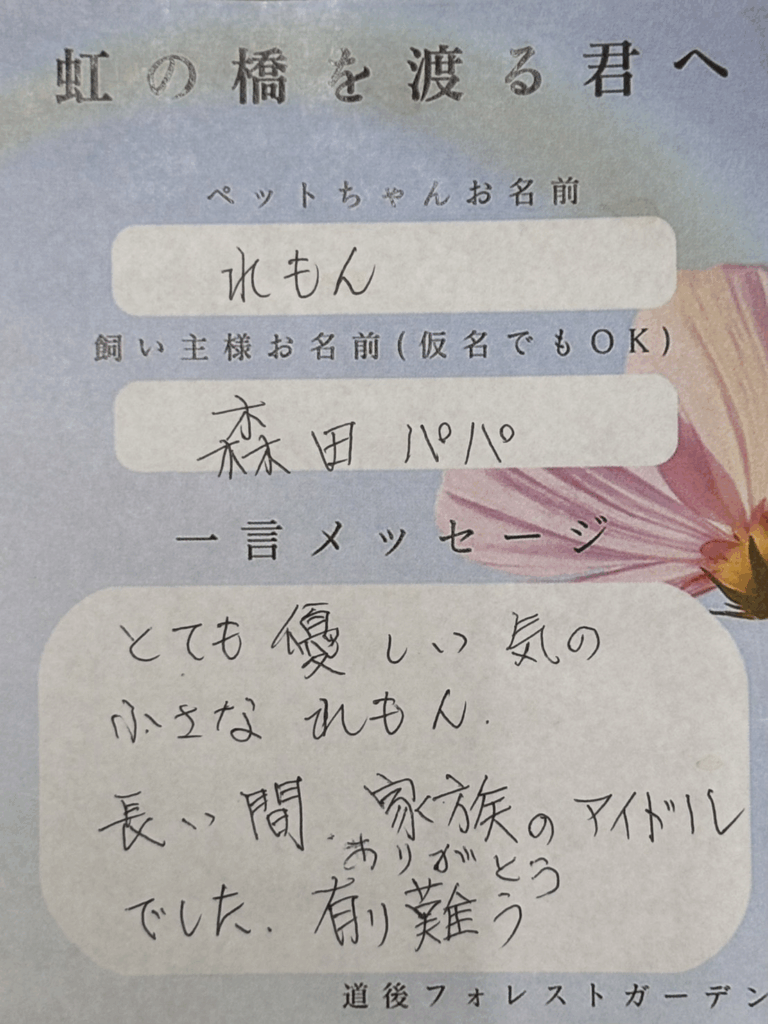 虹の橋を渡る君へ
ペットちゃんお名前
れもん
飼い主様お名前(仮名でもOK)
森田 パパ
一言メッセージ
とても優しい気の
小さな れもん.
長い間. 家族のアイドル
ありがとう
でした. 有り難う
道後フォレストガーデン